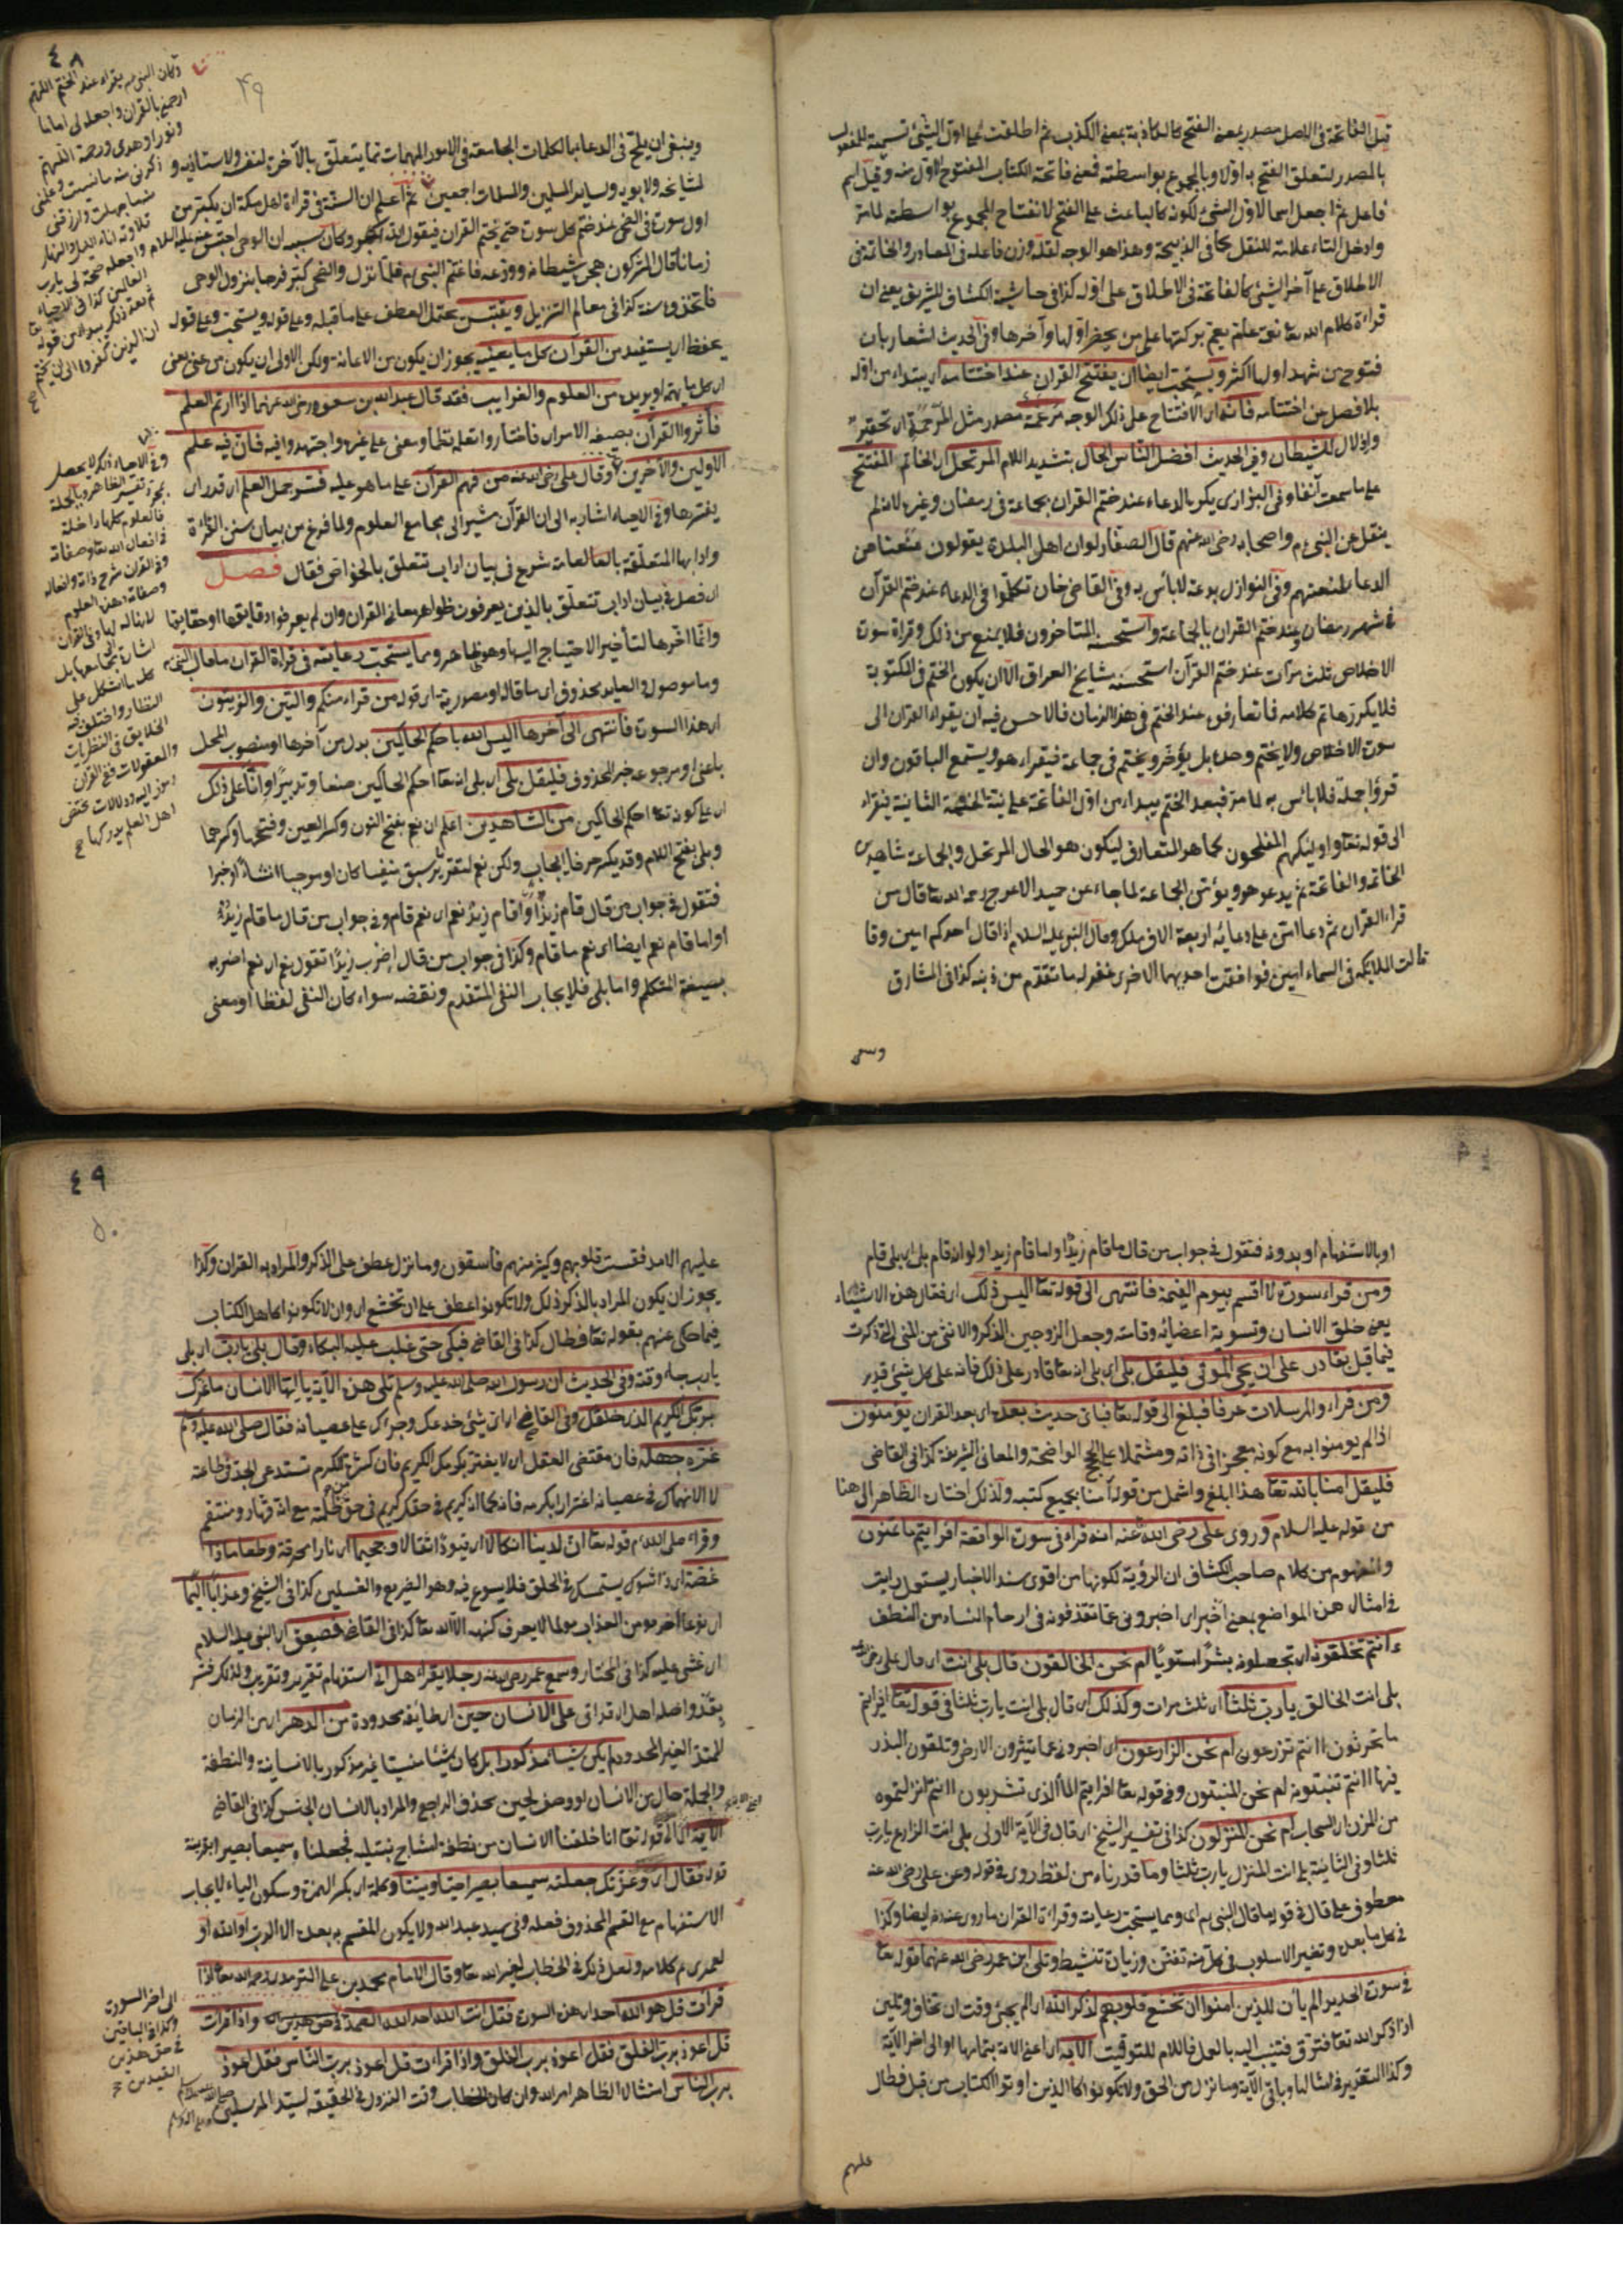 قيل الفاتحة في الاصل مصدر بمعنى الفتح كالكاذبة بمعنى الكذب ثم اطلقت على اول الشيء تسمية للمفعول
بالمصدر لتعلق الفتح به اولا وبالمجموع بواسطته فمعنى فاتحة الكتاب المفتوح اول منه وقيل اسم
فاعل ثم اجعل اسما لاول الشيء لكونه كالباعث على الفتح لانفتاح المجموع بواسطته لما مر
وادخل التاء علامة للنقل كما في الذبيحة وهذا هو الوجه لقلة وزن فاعلة في المصادر والخاتمة في
الاطلاق على آخر الشيء كالفاتحة في الاطلاق على اوله كذا في حاشية الكشاف للشريف يعني ان
قراءة كلام الله تعا نعمة عظيمة يعم بركتها على من يحضر اولها وآخرها وفي الحديث اشعار بان
فتوح من شهد اولها اكثر ويستحب ايضا ان يفتتح القران عند اختتامه اى يبتداء من اوله
بلا فصل من اختتامه فانه اى الافتتاح على ذلك الوجه مرغمة مصدر مثل المرحمة اى تحقير
واذلال للشيطان وفي الحديث افضل الناس الحال بتشديد اللام المرتحل اى الخاتم المفتتح
على ما سمعت آنفا وفي البزازى يكره الدعاء عند ختم القران بجماعة في رمضان وغيره لانه لم
ينقل عن النبي م واصحابه رضى الله عنهم قال الصفار لولا ان اهل البلدة يقولون منعنا من
الدعا لمنعتهم وفي النوازل بدعة لا بأس به وفي القاضى خان تكلموا في الدعاء عند ختم القرآن
في شهر رمضان وعند ختم القران بالجماعة واستحسنه المتاخرون فلا يمنع من ذلك وقراة سورة
الاخلاص ثلث مرات عند ختم القرآن استحسنه مشايخ العراق الا ان يكون الختم في المكتوبة
فلا يكررها تم كلامه فما تعارف عند الختم في هذا الزمان فالاحسن فيه ان يقراء القران الى
سورة الاخلاص ولا يختم وحده بل يؤخر ويختم في جماعة فيقراء هو ويستمع الباقون وان
قرؤا جملة فلا بأس به لما مر فبعد الختم يبداء من اول الفاتحة على نية الختمة الثانية فيقراء
الى قوله تعا واولئك هم المفلحون كما هو المتعارف ليكون هو الحال المرتحل والجماعة شاهدين
الخاتمة والفاتحة ثم يدعو هو ويؤمن الجماعة لما جاء عن حميد الاعرج رحمه الله تعا قال من
قراء القران ثم دعا امن على دعائه اربعة الاف ملك وقال النبي عليه السلام اذا قال احدكم امين وقا
قالت الملائكة في السماء امين فوافقت احديهما الاخرى غفر له ما تقدم من ذنبه كذا في المشارق
وينبغي ان يلح في الدعاء بالكلمات الجامعة في الامور المهمات مما يتعلق بالآخرة لنفسه ولاستاذيه و
لمشايخه ولابويه ولساير المسلمين والمسلمات اجمعين ثم اعلم ان السنة في قراءة اهل مكة ان يكبر من
اول سورة والضحى عند ختم كل سورة حتى يختم القران فيقول الله اكبر وكان سببه ان الوحى احتبس عنه عليه السلام
زمانا فقال المشركون هجره شيطانه وودعه فاغتم النبي م فلما نزل والضحى كبر فرحا بنزول الوحى
فاتخذوه سنة كذا في معالم التنزيل ويقتبس يحتمل العطف على ما قبله وعلى قوله ويستحب وعلى قوله
يحفظ اى يستفيد من القرآن كل ما يعنيه يجوز ان يكون من الاعانة ولكن الاولى ان يكون من عنى يعنى
اى كل ما يهمه ويريده من العلوم والغرايب فقد قال عبد الله بن مسعود رضى الله عنهما اذا اردتم العلم
فأثروا القرآن بصيغة الامر اى فاختاروا تعلمه نظما ومعنى على غيره واجتهدوا فيه فان فيه علم
الاولين والآخرين وقال على رضى الله عنه من فهم القرآن على ما هو عليه فسر جمل العلم اى قدر ان
يفسرها وفي الاحياء اشار به الى ان القرآن مشير الى مجامع العلوم ولما فرغ من بيان سنن القراءة
وادابها المتعلقة بالعامة شرع في بيان اداب تتعلق بالخواص فقال فصل
اى فصل في بيان اداب تتعلق بالذين يعرفون ظواهر معاني القران وان لم يعرفوا دقايقها وحقايقها
وانما اخرها لتأخير الاحتياج اليها وهو ظاهر ومما يستحب رعايته في قراءة القران ما قال النبي م
وما موصولة والعايد محذوف اى ما قاله او مصدرية اى قوله من قراء منكم والتين والزيتون
اى هذا السورة فانتهى الى آخرها اليس الله باحكم الحاكمين بدل من آخرها او منصوب المحل
باعنى او مرفوعه خبر المحذوف فليقل بلى اى بلى انه تعا احكم الحاكمين صنعا وتدبيرا وانا على ذلك
اى على كونه تعا احكم الحاكمين من الشاهدين اعلم ان نعم بفتح النون وكسر العين وفتحها وكسرهما
وبلى بفتح اللام وقد يكسر حرفا ايجاب ولكن نعم لتقرير سبق منفيا كان او موجبا انشاء او خبرا
فتقول في جواب من قال قام زيد او اقام زيد نعم اى نعم قام وفي جواب من قال ما قام زيد
او اما قام نعم ايضا اى نعم ما قام وكذا في جواب من قال اضرب زيدا تقول نعم اى نعم اضربه
بصيغة المتكلم واما بلى فلايجاب النفى المتقدم ونقضه سواء كان النفى لفظا او معنى
٤٨
٤٩
وكان النبي م يقراء عند الختم اللهم
ارحمنى بالقران واجعله لى اماما
ونورا وهدى ورحمة اللهم
ذكرنى منه ما نسيت وعلمنى
منه ما جهلت وارزقنى
تلاوته اناء الليل والنهار
واجعله حجة لى يا رب
العالمين كذا في الاحياء
وفي الاحياء ذلك لا يحصل
بمجرد تفسير الظاهر وبالجملة
فالعلوم كلها داخلة
في افعال الله تعا وصفاته
وفي القران شرح ذاته وافعاله
وصفاته وهذه العلوم
لا نهاية لها وفي القران
اشارة الى مجامعها بل
كل ما اشكل على
النظار واختلف فيه
الخلايق في النظريات
والمعقولات ففى القران
رموز اليه ودلالات يختص
اهل العلم بدركها
وينبغي
او بالاستفهام او بدونه فتقول في جواب من قال ما قام زيد او اما قام زيد او لو انه قام بلى اى بلى قام
ومن قراء سورة لا اقسم بيوم القيمة فانتهى الى قوله تعا اليس ذلك اى فعال هذه الاشياء
يعنى خلق الانسان وتسوية اعضائه وقامته وجعل الزوجين الذكر والانثى من المنى الذى ذكرت
فيما قبل بقادر على ان يحى الموتى فليقل بلى اى بلى انه تعا قادر على ذلك فانه على كل شيء قدير
ومن قراء والمرسلات عرفا فبلغ الى قوله تعا فباى حديث بعده اى بعد القران يؤمنون
اذا لم يومنوا به مع كونه معجزا في ذاته ومشتملا على الحجج الواضحة والمعانى الشريفة كذا في القاضى
فليقل امنا بالله تعا هذا ابلغ واشمل من قوله آمنا بجميع كتبه ولذلك اختاره الظاهر الى هنا
من قوله عليه السلام وروى على رضى الله عنه انه قراء في سورة الواقعة افرايتم ما تمنون
والمفهوم من كلام صاحب الكشاف ان الرؤية لكونها من اقوى سند الاخبار يستعمل رايت
في امثال هذه المواضع بمعنى اخبر اى اخبرونى عما تقذفونه في ارحام النساء من النطف
ءانتم تخلقونه اى تجعلونه بشرا سويا ام نحن الخالقون قال بلى انت اى قال على رضى الله عنه
بلى انت الخالق يا رب ثلثا اى ثلث مرات وكذلك اى قال بلى انت يا رب ثلثا في قوله تعا افرايتم
ما تحرثون ءانتم تزرعونه ام نحن الزارعون اى اخبرونى عما تثيرون الارض وتلقون البذر
فيها ءانتم تنبتونه ام نحن المنبتون وفي قوله تعا افرايتم الماء الذى تشربون ءانتم انزلتموه
من المزن اى السحاب ام نحن المنزلون كذا في تفسير الشيخ اى قال في الآية الاولى بلى انت الزارع يا رب
ثلثا وفي الثانية بلى انت المنزل يا رب ثلثا وما قدرناه من لفظ روى في قوله وعن على رضى الله عنه
معطوف على قال في قوله ما قال النبي م اى ومما يستحب رعايته وقراءة القران ما روى عنه ايضا وكذا
في كل ما بعده وتغير الاسلوب في كل منه تفنن وزيادة تنشيط وتلى ابن عمر رضى الله عنهما قوله تعا
في سورة الحديد الم يأن للذين امنوا ان تخشع قلوبهم لذكر الله اى الم يجئ وقت ان تخاف وتلين
اذا ذكر الله تعا فترق فتنيب اليه بالعمل فاللام للتوقيت الآية اى اعنى الاية بتمامها او الى اخر الآية
وكذا التقدير في امثالها وباقى الآية وما نزل من الحق ولا تكونوا كالذين اوتوا الكتاب من قبل فطال
عليهم
٤٩
٥٠
عليهم الامد فقست قلوبهم وكثير منهم فاسقون وما نزل عطف على الذكر والمراد به القران وكذا
يجوز ان يكون المراد بالذكر ذلك ولا تكونوا عطف على ان تخشع اى وان لا تكونوا كاهل الكتاب
فيما حكى عنهم بقوله تعا فطال كذا في القاضى فبكى حتى غلب عليه البكاء وقال بلى يا رب اى بلى
يا رب جاء وقته وفي الحديث ان رسول الله صلى الله عليه وسلم تلى هذه الآية يا ايها الانسان ما غرك
بربك الكريم الذى خلقك وفي القاضى اى اى شيء خدعك وجرأك على عصيانه فقال صلى الله عليه وسلم
غره جهله فان مقتضى العقل ان لا يغتر بكرمك الكريم فان كثرة الكرم تستدعى الجد في طاعته
لا الانهماك في عصيانه اغترارا بكرمه فانه كما انه كريم في حقك كريم في حق من ظلمته مع انه قهار ومنتقم
وقراء صلى الله م قوله تعا ان لدينا انكالا اى قيودا ثقالا وجحيما اى نارا محرقة وطعاما ذا
غصة اى ذا شوك يستمسك في الحلق فلا يسوغ فيه وهو الضريع والغسلين كذا في الشيخ وعذابا اليما
اى نوعا آخر من العذاب مولما لا يعرف كنهه الا الله تعا كذا في القاضى فصعق اى النبي عليه السلام
اى غشى عليه كذا في المختار وسمع عمر رضى الله عنه رجلا يقراء هل اتى استفهام تقرير وتقريب ولذلك فسر
بقد واصله اهل اى قد اتى على الانسان حين اى طائفة محدودة من الدهر اى من الزمان
الممتد الغير المحدود لم يكن شيئا مذكورا بل كان شيئا منسيا غير مذكور بالانسانية والنطفة
والجملة حال من الانسان او وصف لحين بحذف الراجع والمراد بالانسان الجنس كذا في القاضى
الآية الى قوله تعا انا خلقنا الانسان من نطفة امشاج نبتليه فجعلناه سميعا بصيرا بقرينة
قوله فقال اى وعزتك جعلته سميعا بصيرا حيا وميتا وكلمة اى بكسر الهمزة وسكون الياء لايجاب
الاستفهام مع القسم المحذوف فعله وفي سيد عبد الله ولا يكون المقسم به بعده الا الرب او الله او
لعمرى تم كلامه ولعل ذلك في الخطاب لغير الله تعا وقال الامام محمد بن على الترمذى رحمه الله تعا اذا
قرات قل هو الله احد اى هذه السورة فقل انت الله احد الله الصمد واذا قرات
قل اعوذ برب الفلق فقل اعوذ برب الفلق واذا قراءت قل اعوذ برب الناس فقل اعوذ
برب الناس امتثالا لظاهر امر الله وان كان الخطاب وقت النزول في الحقيقة لسيد المرسلين
الى اخر السورة
وكذا في الباقيتين
في حق هذين
القيدين